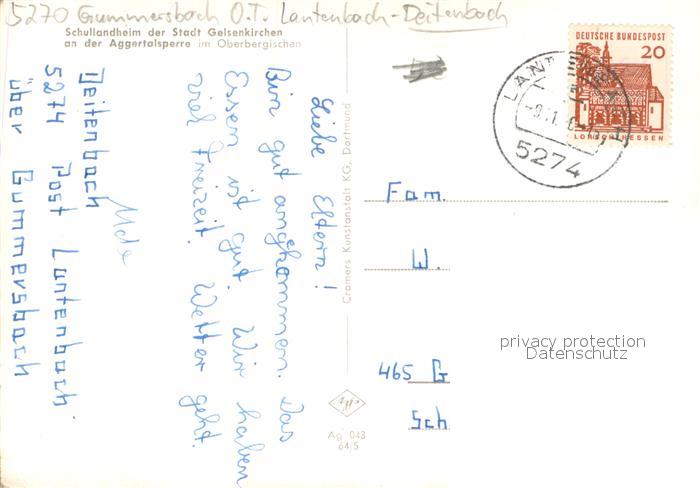 5270 Gummersbach O.T. Lantenbach-Deitenbach
Schullandheim der Stadt Gelsenkirchen
an der Aggertalsperre im Oberbergischen
Liebe Eltern!
Bin gut angekommen. Das
Essen ist gut. Wir haben
viel Freizeit. Wetter geht.
Ude
Deitenbach
5274 Post Lantenbach
über Gummersbach
Cramers Kunstanstalt KG, Dortmund
Ag 048
64/5
DEUTSCHE BUNDESPOST
20
LORSCH/HESSEN
5274
Fam.
W.
465 G
Sch
privacy protection
Datenschutz